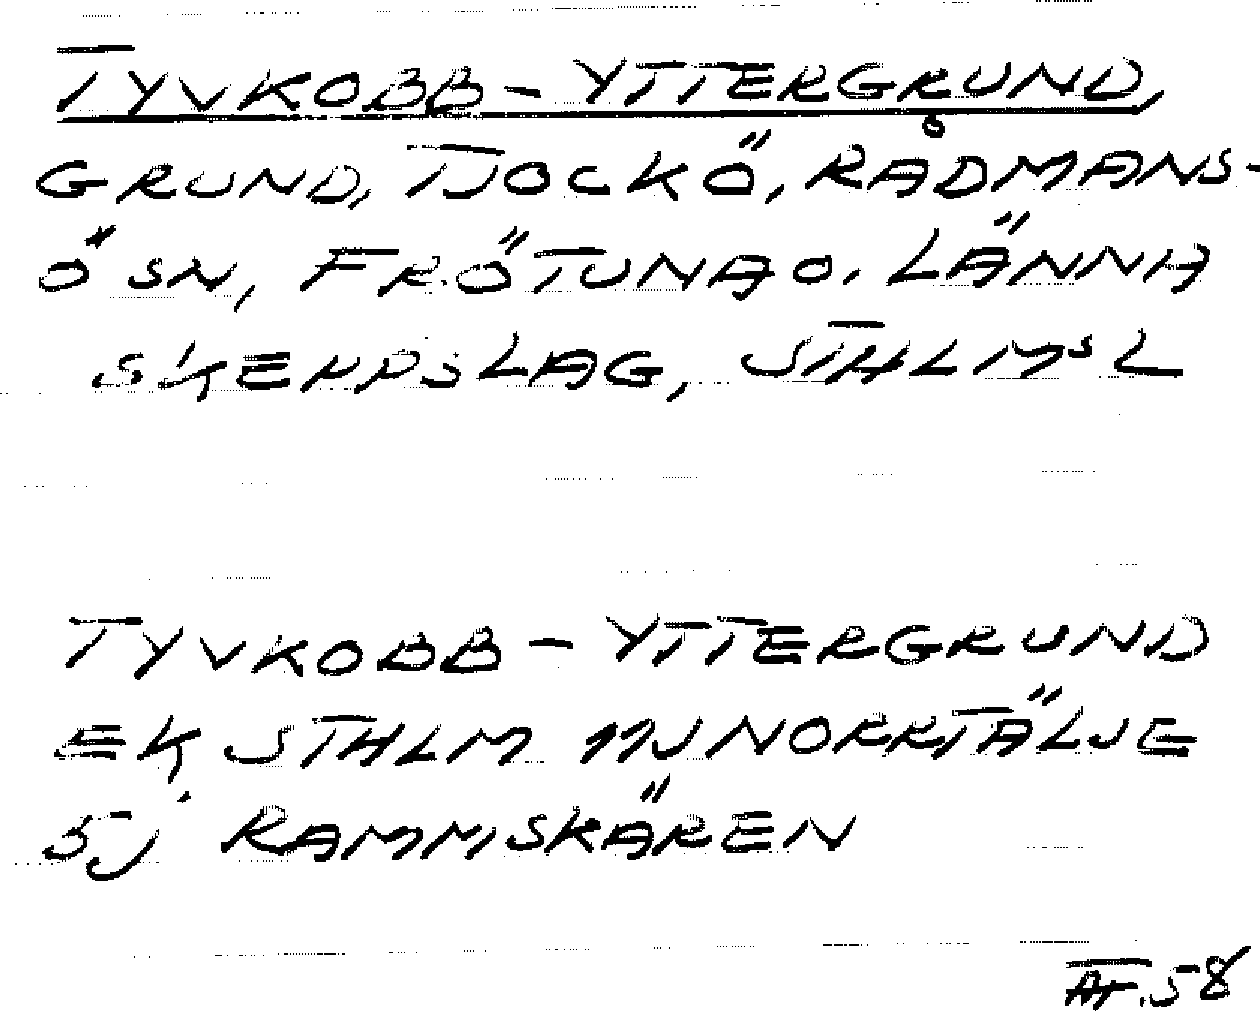 TYVKOBB-YTTERGRUND,
GRUND, TJOCKÖ, RÅDMANS-
Ö SN, FRÖTUNA O. LÄNNA
SKEPPSLAG, STHLMS L
TYVKOBB-YTTERGRUND
EK STHLM 11J NORRTÄLJE
5j RAMMSKÄREN
58